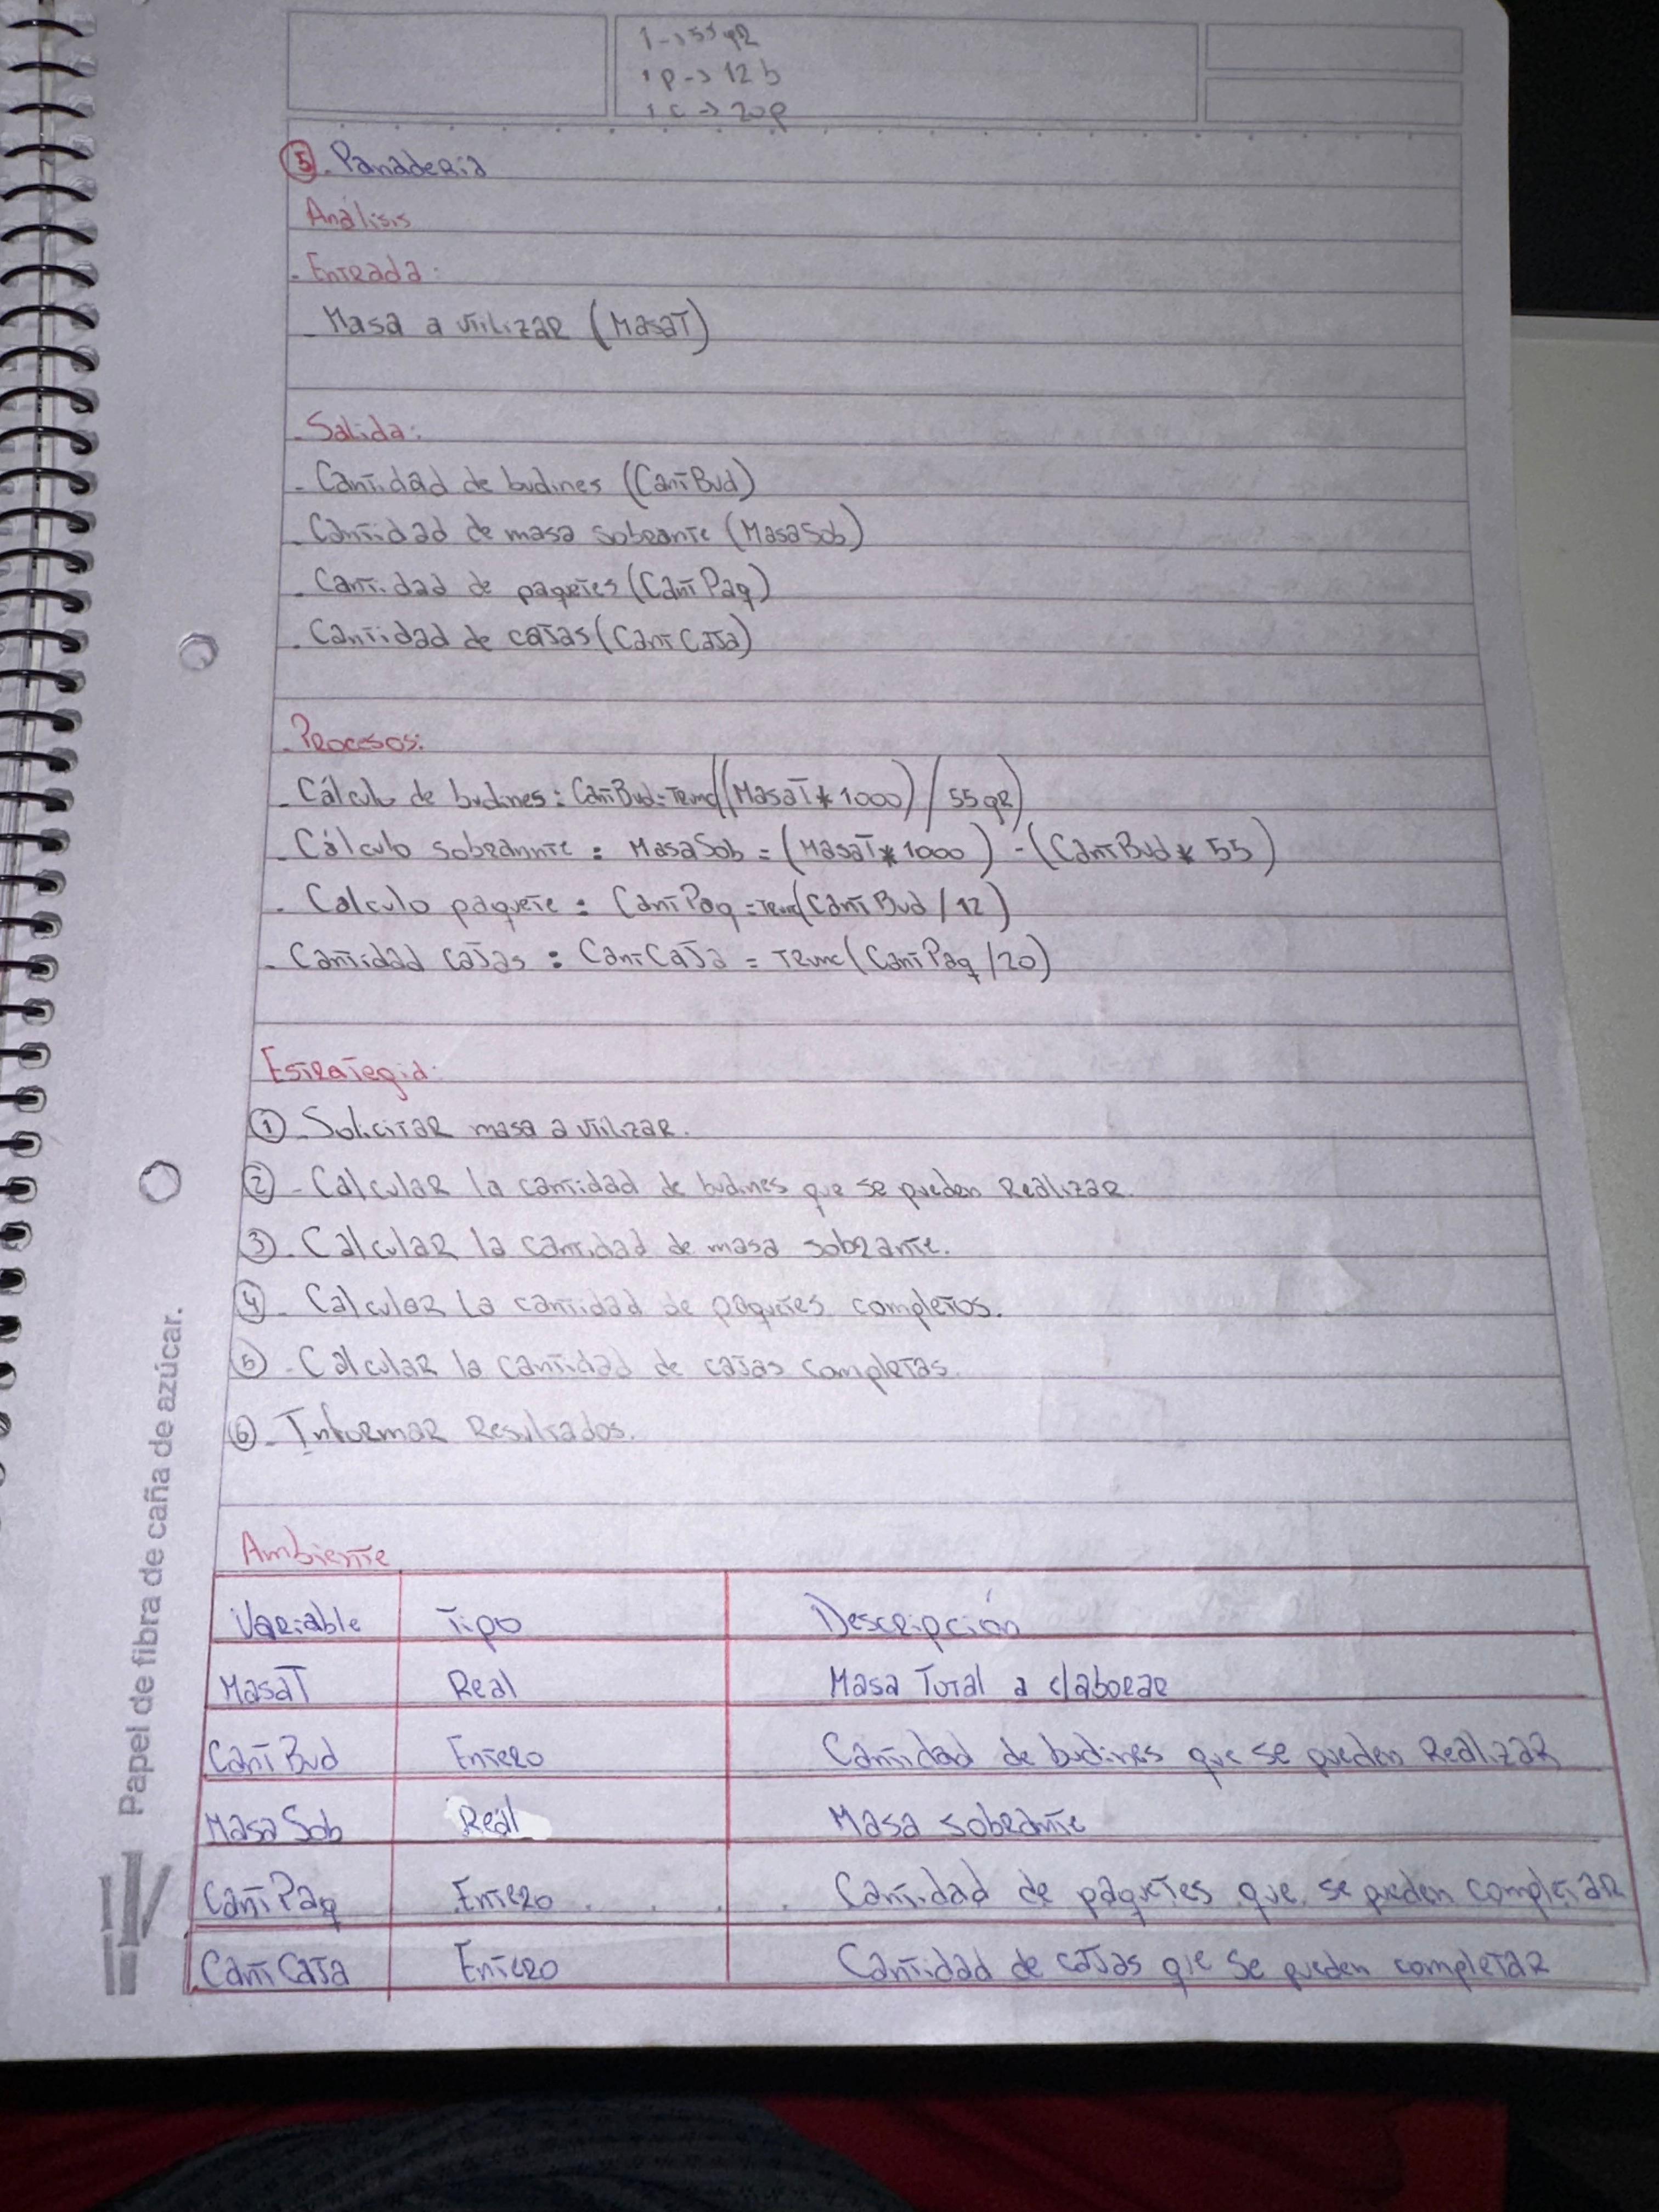 1 -> 55 gR
1 p -> 12 b
1 c -> 20p
5. Panaderia
Análisis
- Entrada:
- Masa a utilizar (MasaT)
- Salida:
- Cantidad de budines (CantBud)
- Cantidad de masa sobrante (MasaSob)
- Cantidad de paquetes (CantPaq)
- Cantidad de cajas (CantCaja)
- Procesos:
- Cálculo de budines: CantBud = Trunc((MasaT * 1000) / 55gR)
- Cálculo sobrannte : MasaSob = (MasaT * 1000) - (CantBud * 55)
- Calculo paquete : CantPaq = Trunc(CantBud / 12)
- Cantidad cajas : CantCaja = Trunc(CantPaq / 20)
Estrategia:
① - Solicitar masa a utilizar.
② - Calcular la cantidad de budines que se pueden realizar.
③ - Calcular la cantidad de masa sobrante.
④ - Calcular la cantidad de paquetes completos.
⑤ - Calcular la cantidad de cajas completas.
⑥ - Informar resultados.
Ambiente
Variable Tipo Descripción
MasaT Real Masa Total a elaborar
CantBud Entero Cantidad de budines que se pueden realizar
MasaSob Real Masa sobrante
CantPaq Entero Cantidad de paquetes que se pueden completar
CantCaja Entero Cantidad de cajas que se pueden completar
Papel de fibra de caña de azúcar.